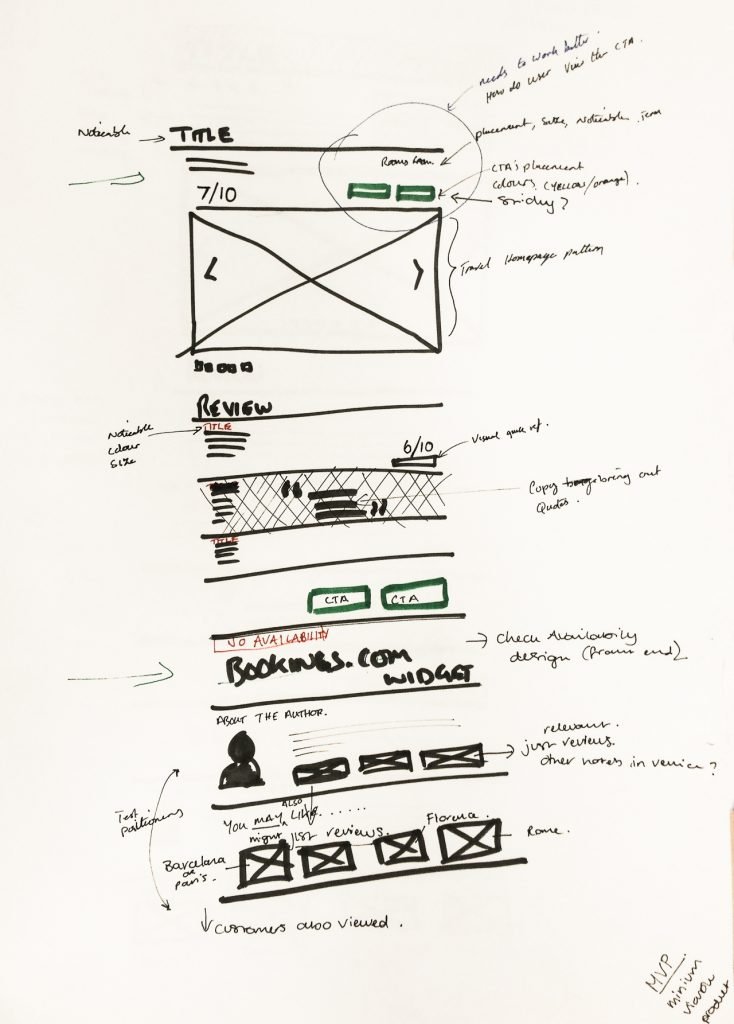 needs to work better.
How do user view the CTA.
Noticable
TITLE
placement, size, noticable, term
Rooms from.
CTA's placement
colours (yellow/orange).
Sticky?
7/10
Travel Homepage pattern
REVIEW
TITLE
Noticable
colour
size
6/10
Visual quick ref.
“
Copy bring out
Quotes.
”
TITLE
CTA
CTA
NO AVAILABILITY
BOOKINGS.COM
WIDGET
Check Availability
design (Front end)
ABOUT THE AUTHOR.
relevant.
just reviews.
other hotels in venice?
Test
positioning
ALSO
YOU MAY LIKE......
might
just reviews.
Florence.
Rome.
Barcelona
or
paris.
customers also viewed.
MVP
minium
viable
product